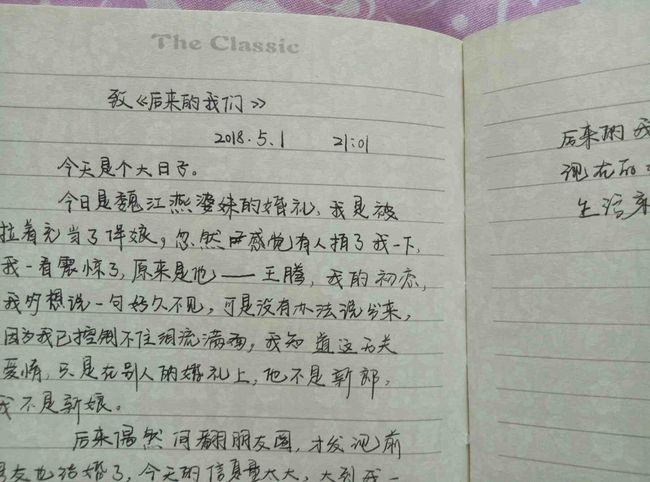 The Classic
致《后来的我们》
2018.5.1 21:01
今天是个大日子。
今日是魏江燕婆妹的婚礼,我是被
拉着充当了伴娘,忽然感觉有人拍了我一下,
我一看震惊了,原来是他——王腾,我的初恋,
我多想说一句好久不见,可是没有办法说出来,
因为我已控制不住泪流满面,我知道这无关
爱情,只是在别人的婚礼上,他不是新郎,
我不是新娘。
后来偶然间翻朋友圈,才发现前
男友也结婚了,今天的信息量太大,大到我一
后来的我
现在的
生活